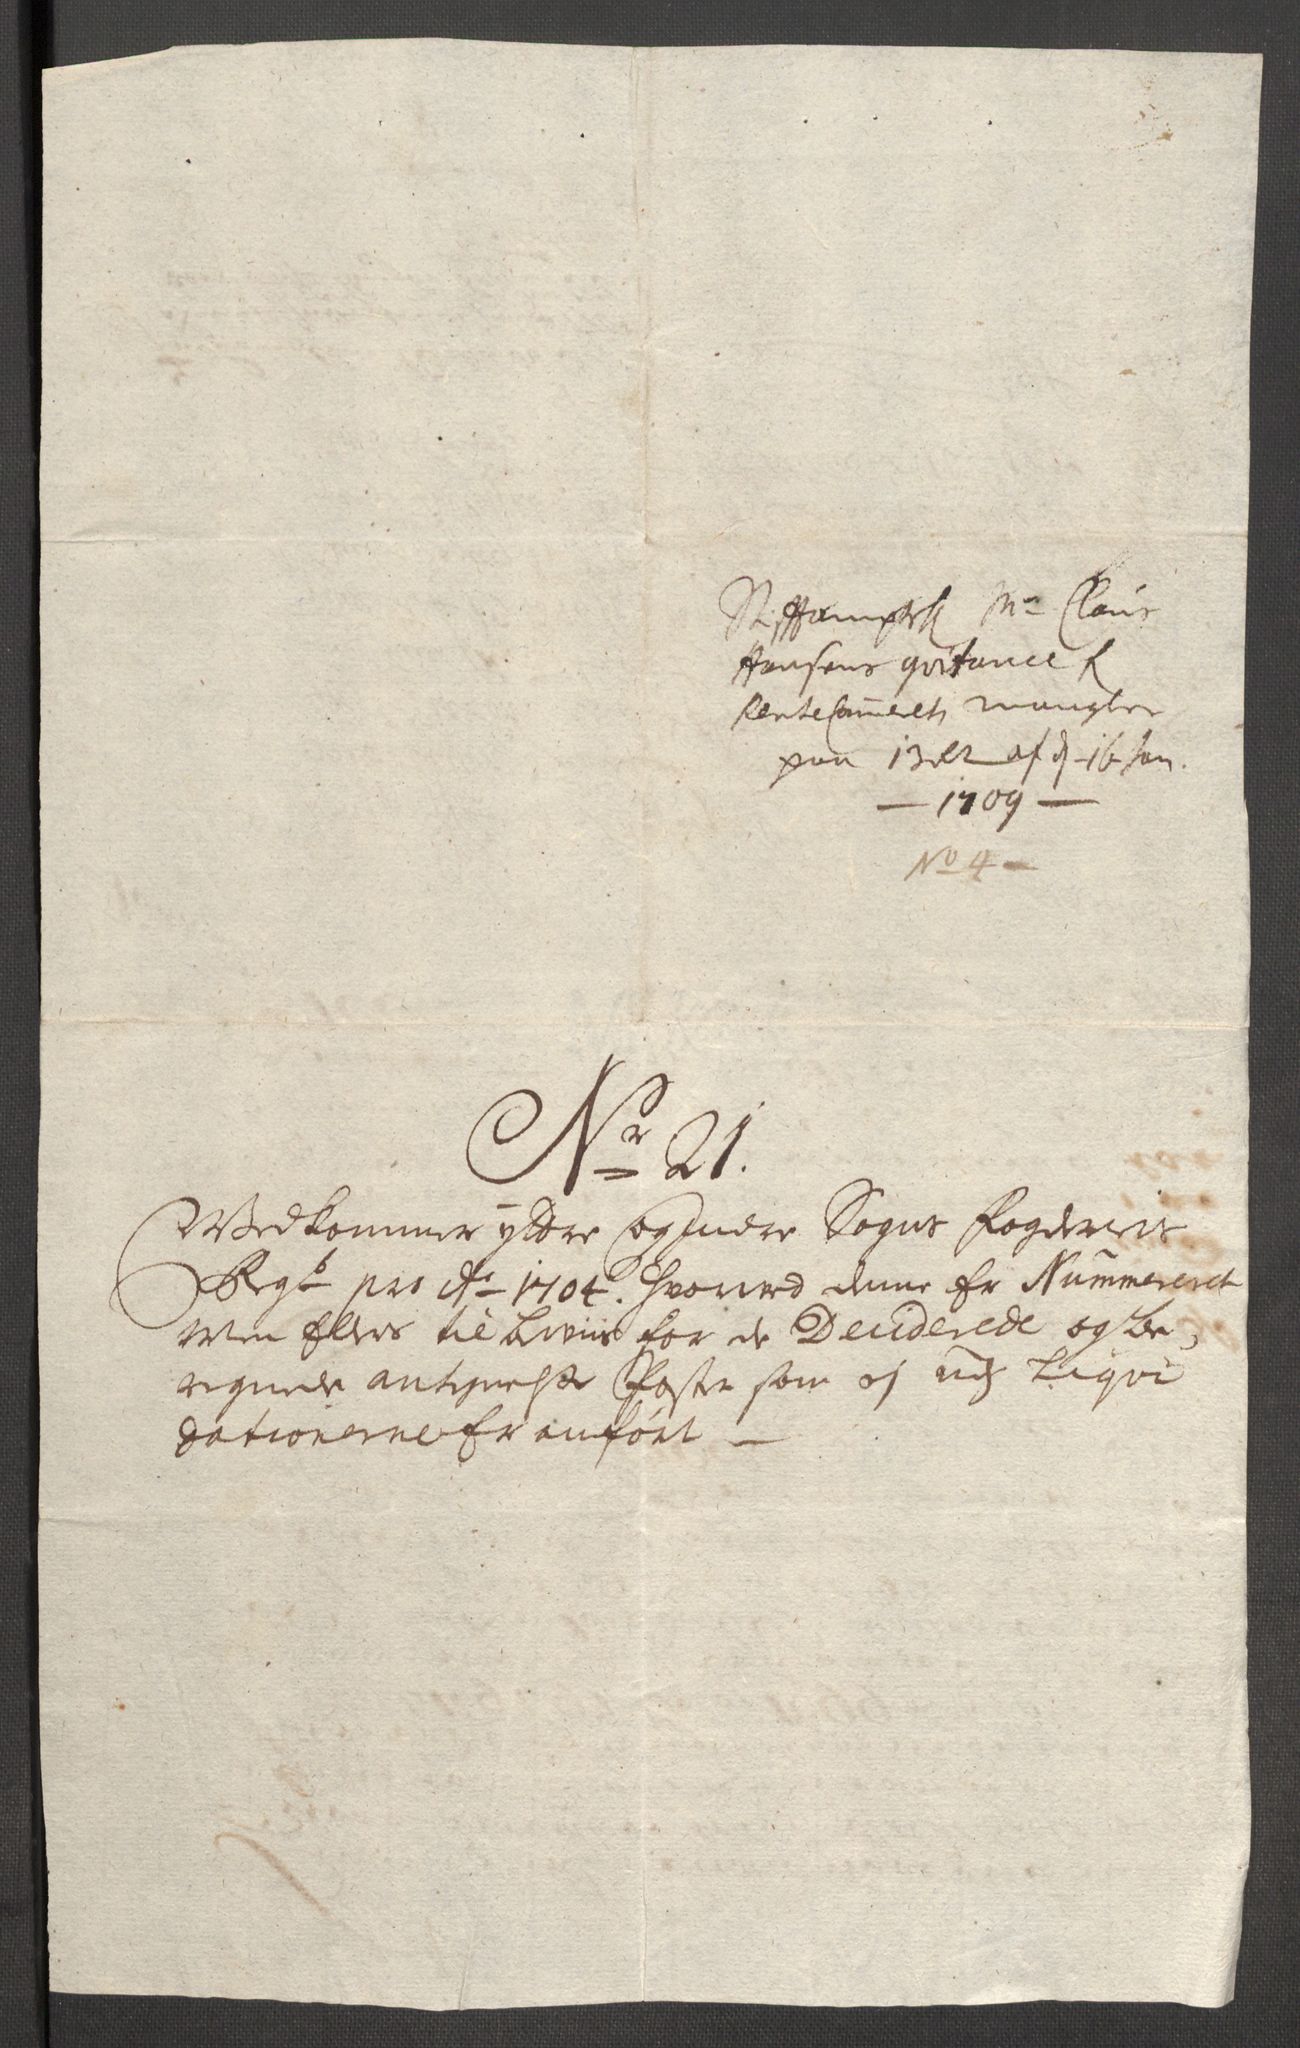 Stiftamptsk: Mr Claus
Hansens qvitance
RenteCameret mangler
paa 13 af 16 Jan.
— 1709 —
No 4 —
Nr 21.
Vedkommer yttre og Indre Sogns Fogderies
Regsk pro Ao 1704. hvorved denne er Nummereret
men ellers til beviis for de Deciderede og be„
regnede antegnelse Poster som af Liqvi
dationerne er anført —